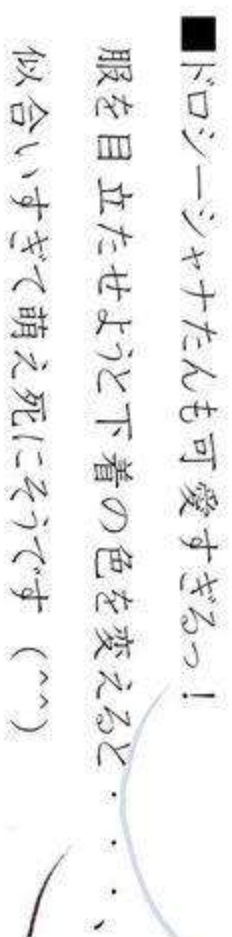 ■ドロシーシャナたんも可愛すぎるっ！
服を目立たせようと下着の色を変えると・・・、
似合いすぎて萌え死にそうです（^^）